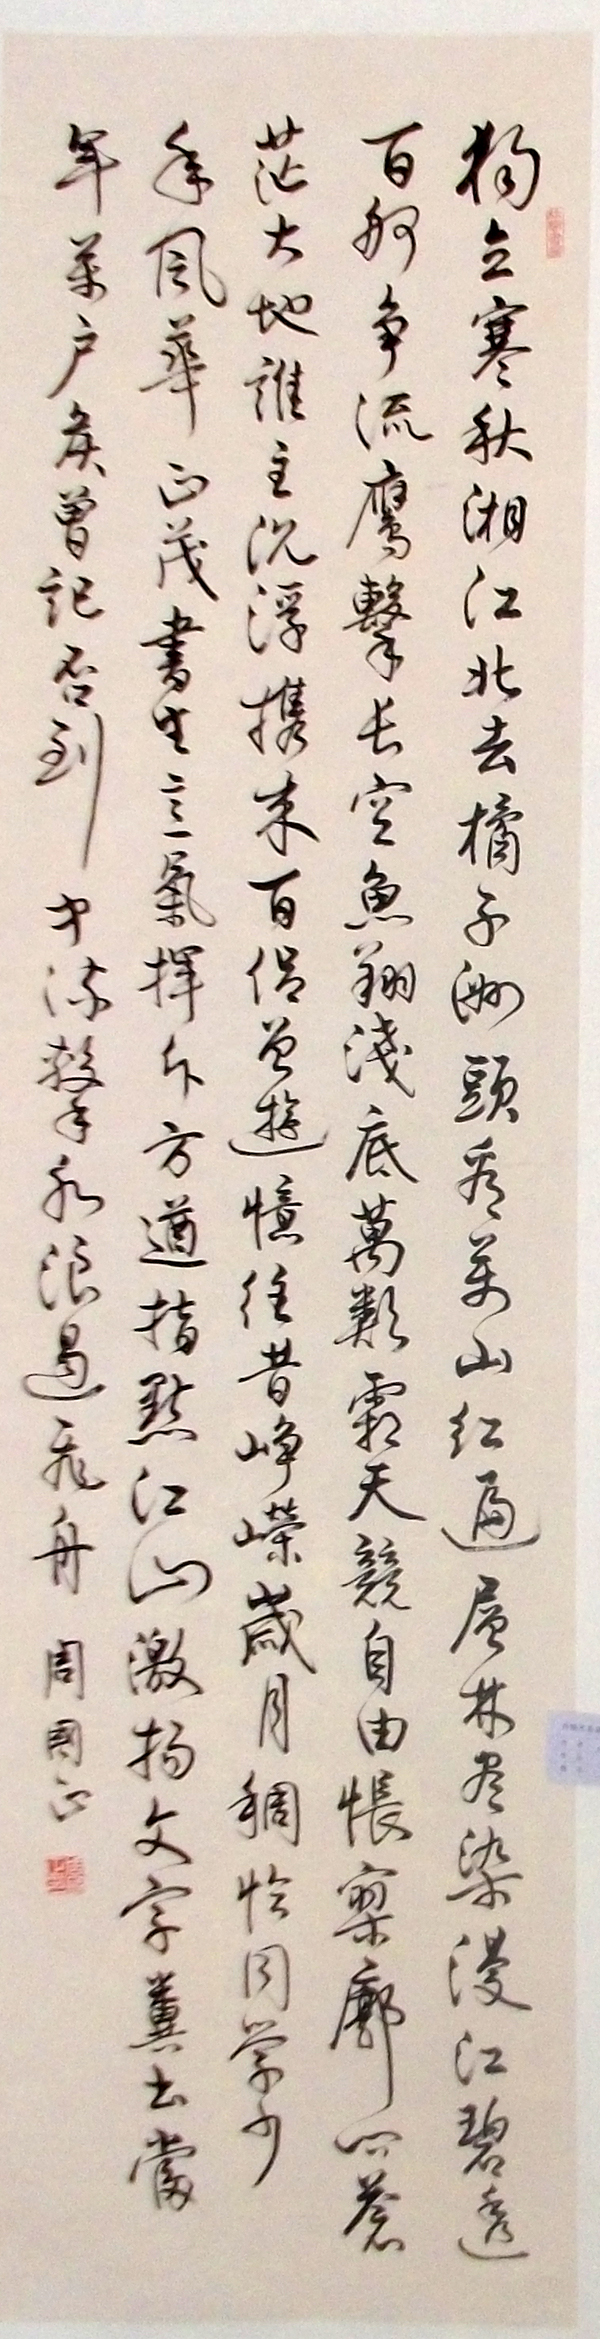 獨立寒秋湘江北去橘子洲頭看萬山紅遍層林盡染漫江碧透
百舸争流鷹擊長空魚翔淺底萬類霜天競自由悵寥廓問蒼
茫大地誰主沉浮攜來百侣曾遊憶往昔峥嶸歲月稠恰同學少
年風華正茂書生意氣揮斥方遒指點江山激揚文字糞土當
年萬户侯曾記否到中流擊水浪遏飛舟 周國正